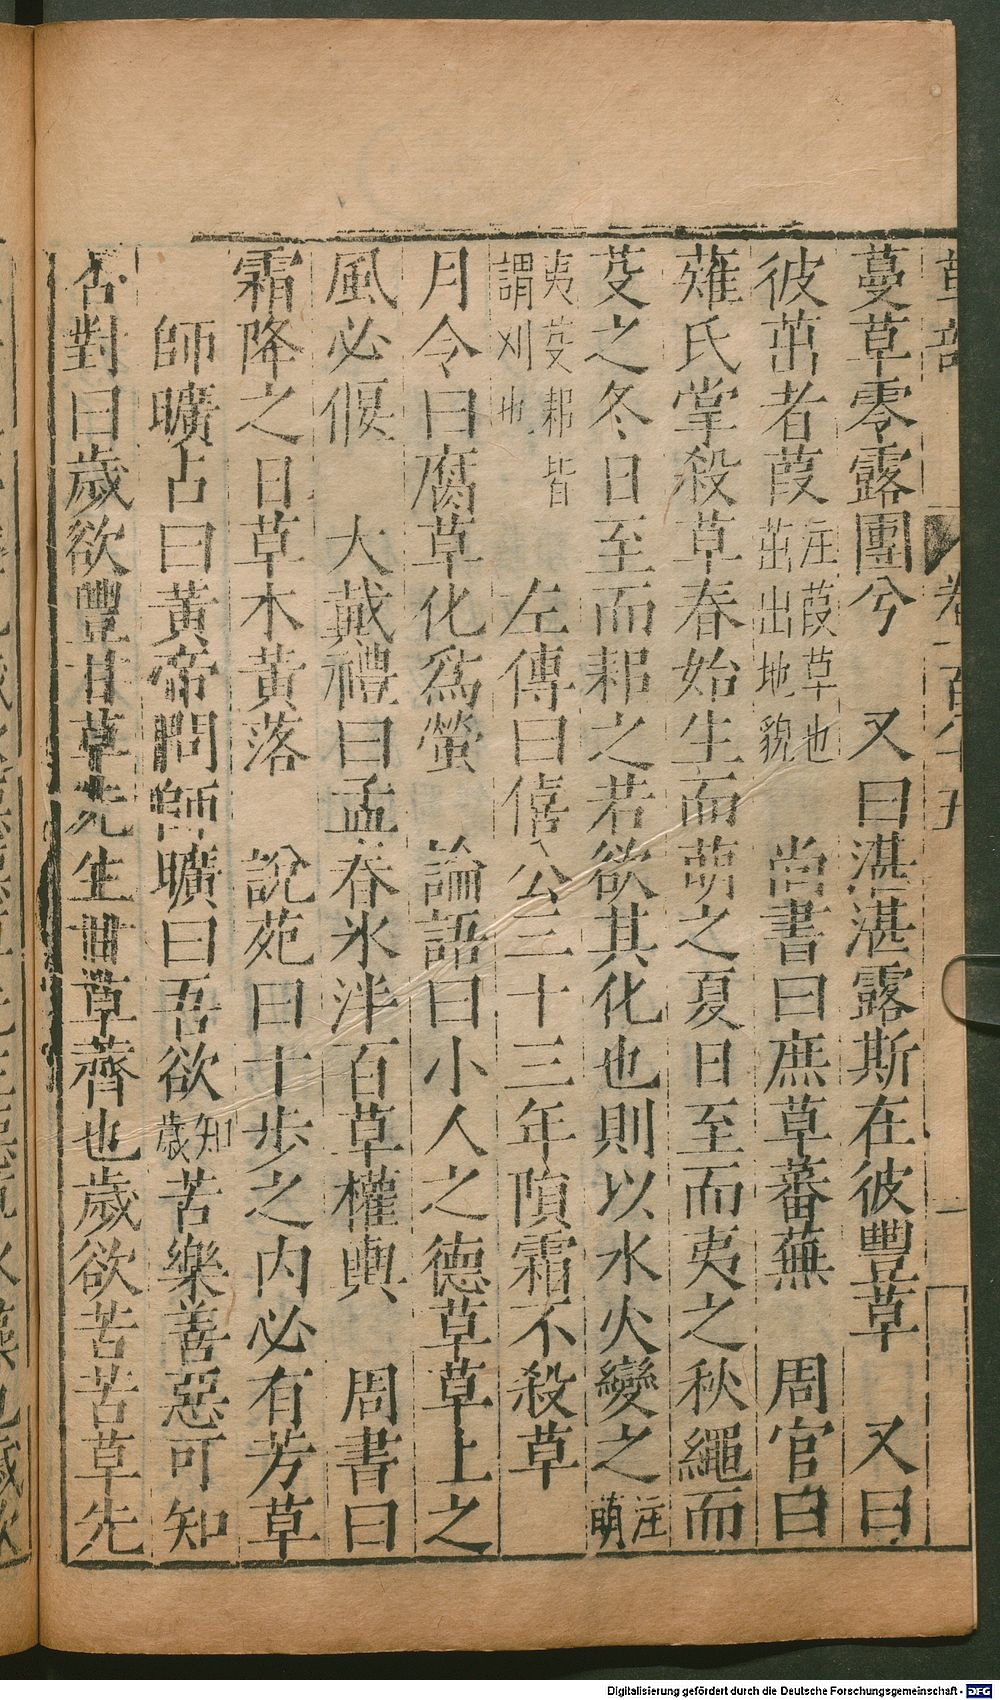 蔓草零露團兮　又曰湛湛露斯在彼豐草　又曰
彼茁者葭注葭草也茁出地貌　尚書曰庶草蕃蕪　周官曰
薙氏掌殺草春始生而萌之夏日至而夷之秋繩而
芟之冬日至而耜之若欲其化也則以水火變之注萌
夷芟耜皆謂刈也　左傳曰僖公三十三年隕霜不殺草
月令曰腐草化爲螢　論語曰小人之德草草上之
風必偃　大戴禮曰孟春氷泮百草權輿　周書曰
霜降之日草木黃落　說苑曰十步之内必有芳草
師曠占曰黃帝問師曠曰吾欲知歲苦樂善惡可知
否對曰歲欲豐甘草先生甘草薺也歲欲苦苦草先
Digitalisierung gefördert durch die Deutsche Forschungsgemeinschaft - DFG